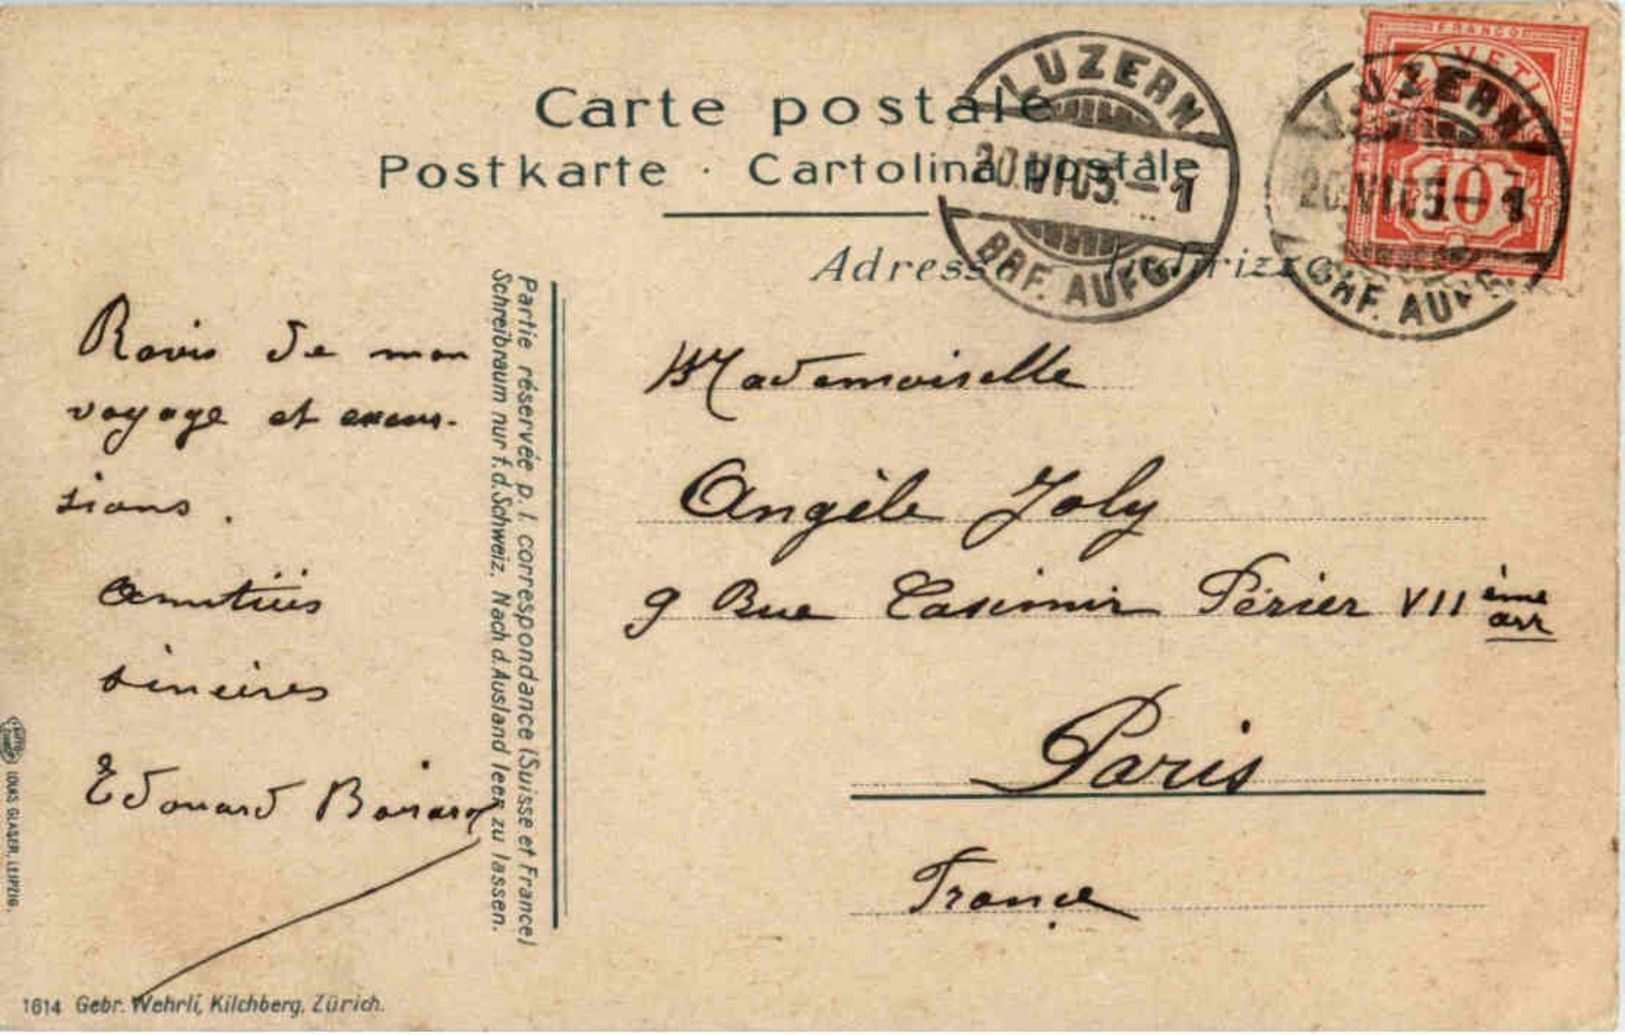 Carte postale
Postkarte · Cartolina postale
LUZERN
20.VI.05.-1
BRF. AUFG.
LUZERN
20.VI.05-1
BRF. AUFG.
FRANCO
10
Adresse
Ravis de mon
voyage et excur-
sions.
Amitiés
sincères
Edouard
Partie réservée p. l. correspondance (Suisse et France)
Schreibraum nur f. d. Schweiz. Nach d. Ausland leer zu lassen.
Mademoiselle
Angèle Joly
9 Rue Casimir Périer VII ème arr
Paris
France
LOUIS GLASER, LEIPZIG.
1614 Gebr. Wehrli, Kilchberg, Zürich.